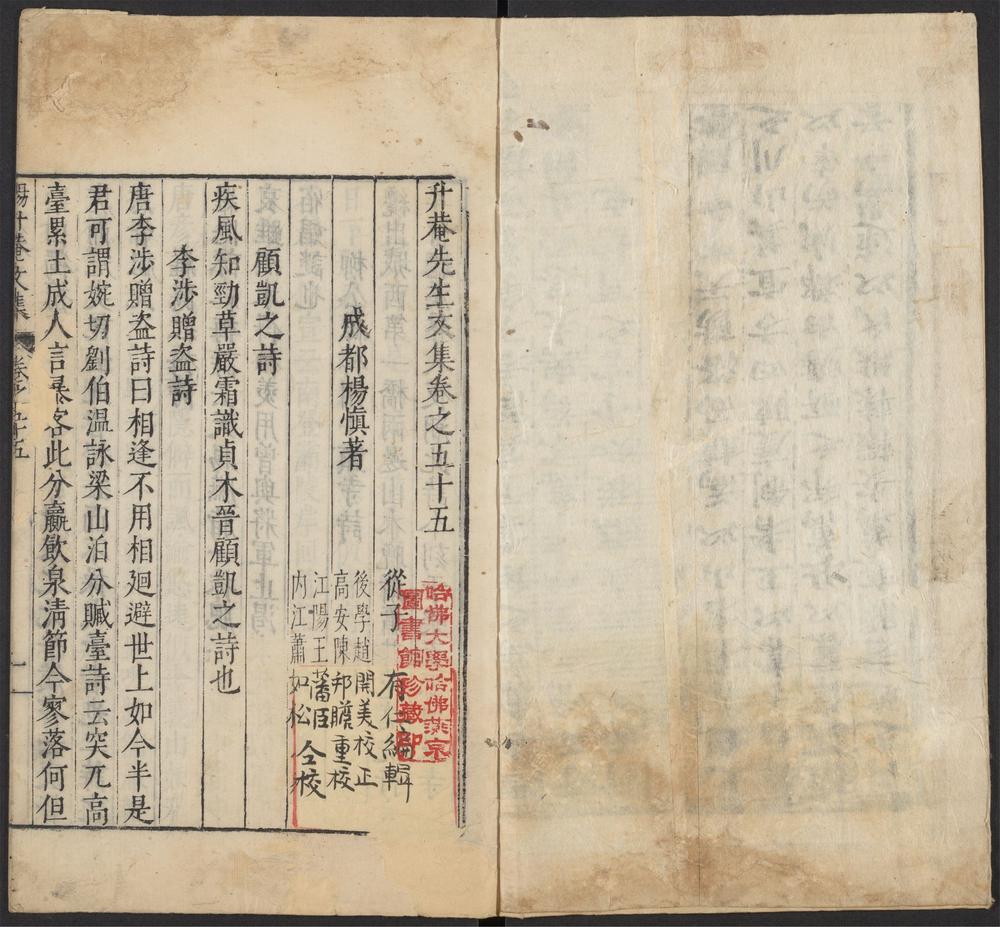 升菴先生文集卷之五十五
成都楊慎著
從子 有仁編輯
後學趙開美校正
高安陳邦瞻重校
江陽王藩臣
內江蕭如松 仝校
顧凱之詩
疾風知勁草嚴霜識貞木晉顧凱之詩也
李涉贈盜詩
唐李涉贈盜詩曰相逢不用相廻避世上如今半是
君可謂婉切劉伯溫詠梁山泊分贓臺詩云突兀高
臺累土成人言暴客此分贏飲泉清節今寥落何但
楊升菴文集 卷之五十五 一
哈佛大學哈佛燕京
圖書館珍藏印